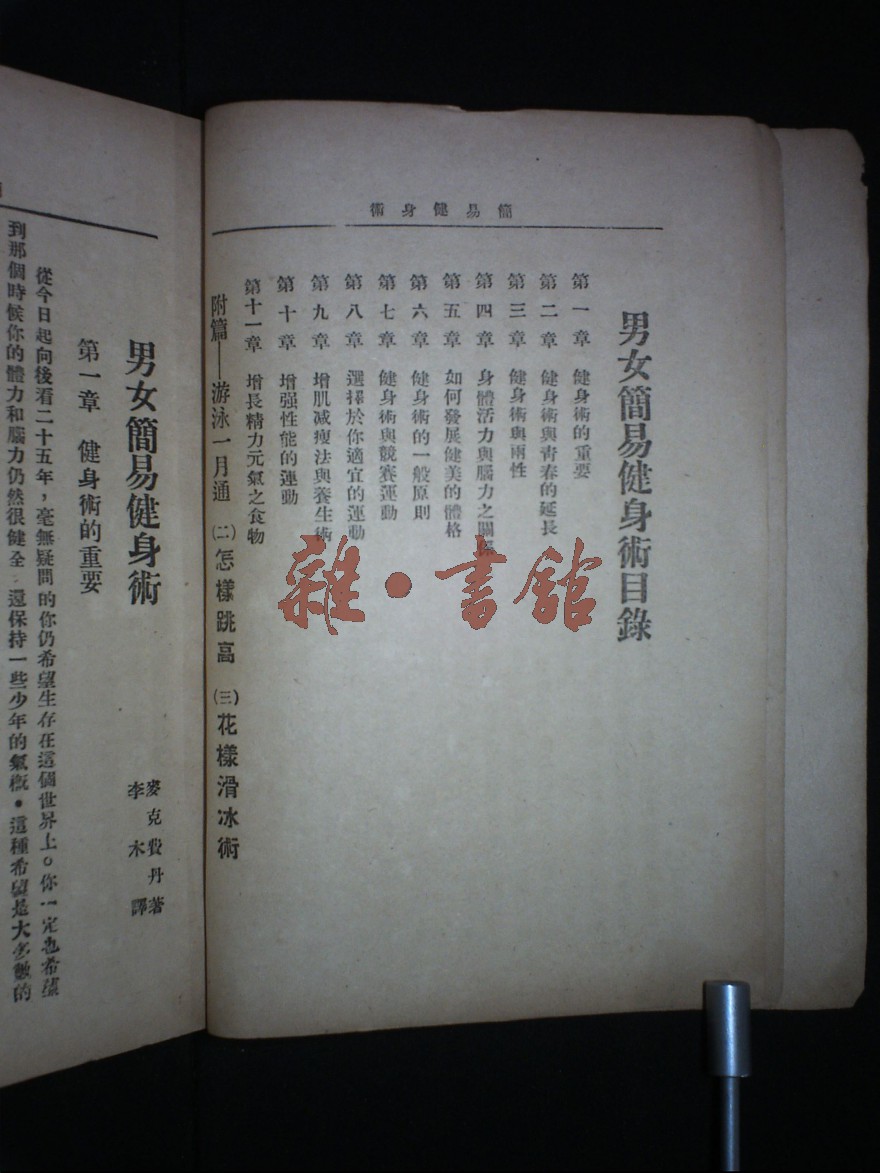 簡易健身術
男女簡易健身術目錄
第一章 健身術的重要
第二章 健身術與青春的延長
第三章 健身術與兩性
第四章 身體活力與腦力之關係
第五章 如何發展健美的體格
第六章 健身術的一般原則
第七章 健身術與競賽運動
第八章 選擇於你適宜的運動
第九章 增肌減瘦法與養生術
第十章 增强性能的運動
第十一章 增長精力元氣之食物
附篇——游泳一月通 (二)怎樣跳高 (三)花樣滑冰術
雜·書館
男女簡易健身術
麥克費丹著
李木譯
第一章 健身術的重要
從今日起向後看二十五年，毫無疑問的你仍希望生存在這個世界上。你一定也希望
到那個時候你的體力和腦力仍然很健全，還保持一些少年的氣概。這種希望是大多數的